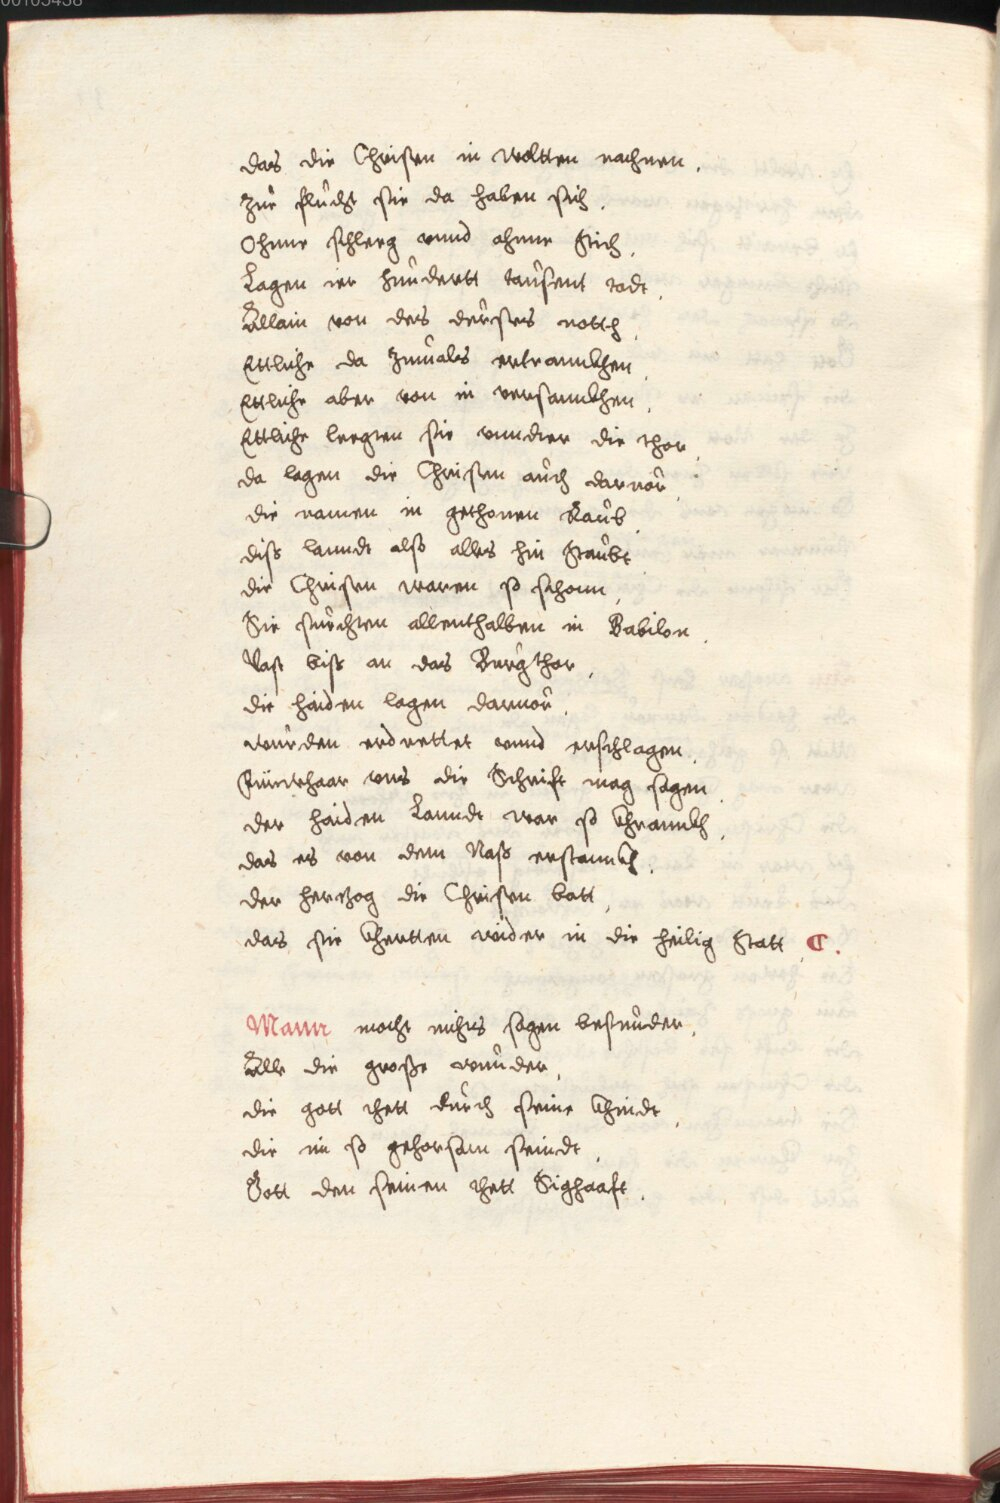 das die Christen in woltten nachnen.
Zůr flucht sie da haben sich.
Ohnne schleeg vnnd ohnne Stich,
Lagen ier hůndertt taůsent todt,
Allain von des důrstes notth,
Ettliche da Zmůales ertrannkhen,
Ettliche aber von in versannkhen,
Ettliche legten sie vnndter die thor,
da lagen die Christen aůch daruor,
die namen in gethonen Raůb,
diss lanndt alß alles hin Staubt
die Christen waren so schonn,
Sie sůchten allenthalben in Babilon,
Vast biss an das Bůrgthor,
die haiden lagen daruor,
wůrden erdrettet vnnd erschlagen,
Fürwhaar vns die Schrift mag sagen
der haiden Lanndt war so khrannkh,
das es von dem Naß erstannkh,
der hertzog die Christen batt,
das sie khertten wider in die heilig Statt,

Mann mocht nichts sagen besůnder,
Alle die große wůnder,
die gott thett důrch seine khindt,
die im so gehorsam seindt,
Gott den seinen thett Sighaaft,